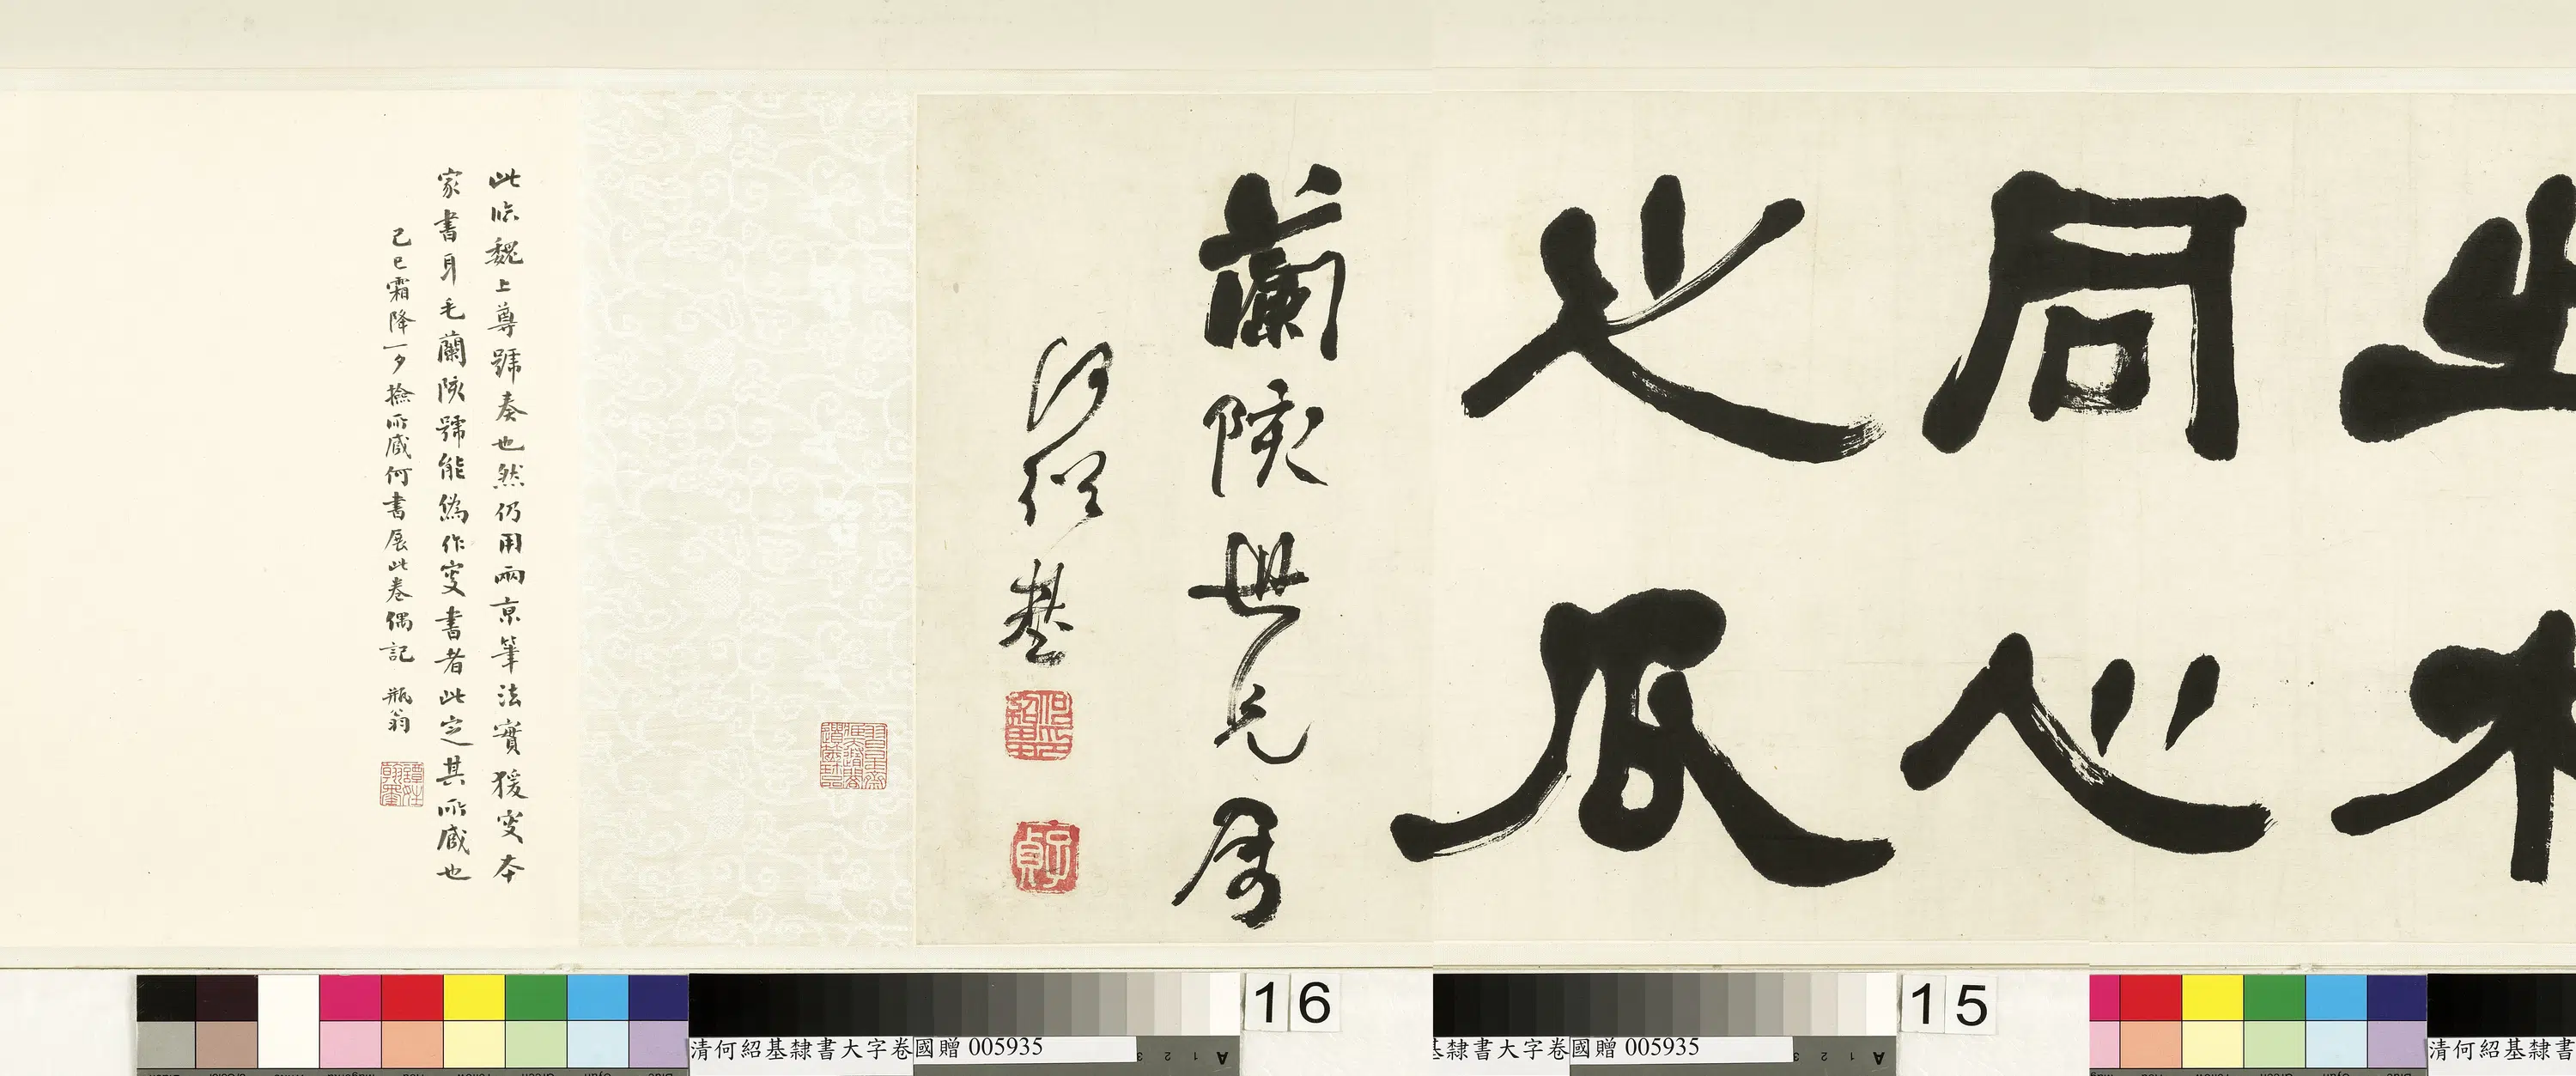 之木
同心
之瓜
蘭陔世兄屬
何紹基
子貞
此臨魏上尊號奏也然仍用兩京筆法實猨叟本
家書耳毛蘭陔號能偽作叟書者此定其所藏也
己巳霜降一夕撿所藏何書展此卷偶記 瓶翁
16
15
清何紹基隸書大字卷國贈 005935
基隸書大字卷國贈 005935
清何紹基隸書